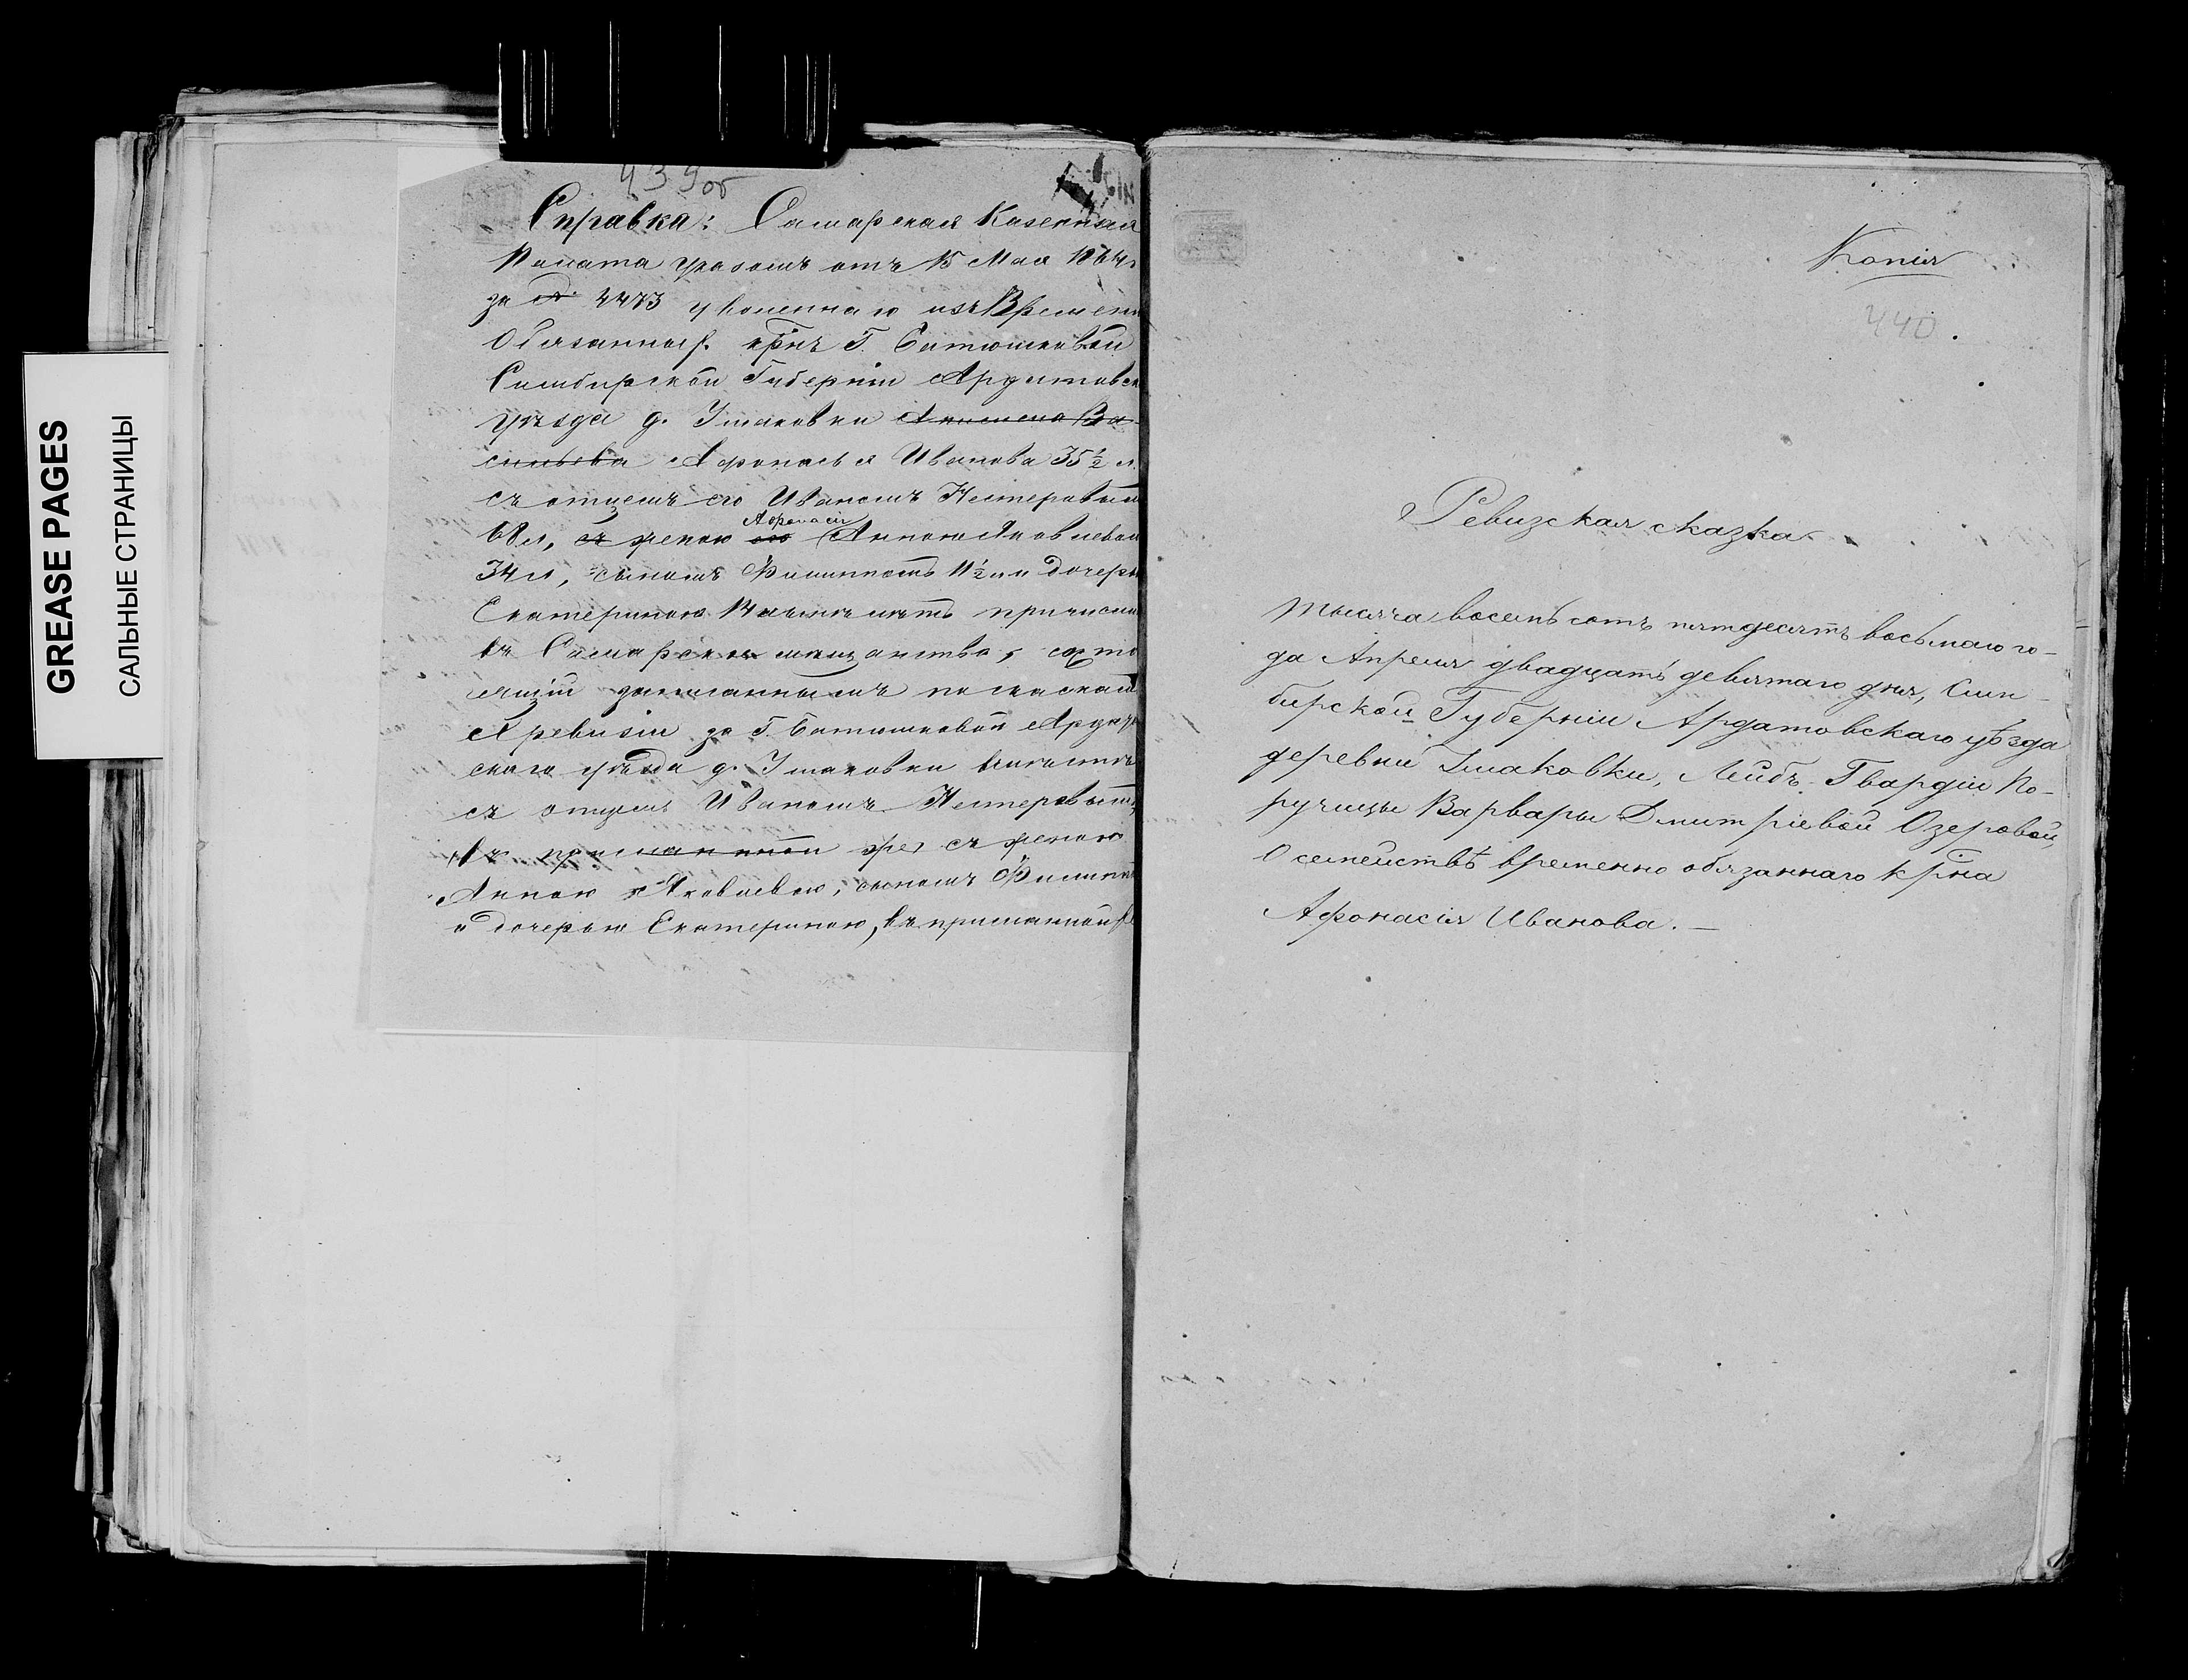 GREASE PAGES
САЛЬНЫЕ СТРАНИЦЫ
439об
Справка: Самарская Казенная
Палата указомъ отъ 15 Мая 1864г
за № 4473 уволеннаго изъ Времен
Обязанных. крнъ Г. Батюшковой
Симбирской Губерніи Ардатовск
уѣзда д. Умаковки Анисима Ва
сильева Афонасья Иванова 35½ л.
съ отцемъ его Иваномъ Нестеровым
68 л, съ женою его Афонасія Анною Яковлевою
34 л, сыномъ Филиппомъ 11½ л и дочерью
Екатериною 14 лѣтъ причисли
въ Самарское мещанство, состо
ящій записаннымъ по сказкам
X ревизіи за Г. Батюшковой Ардатов
скаго уѣзда д. Умаковки вмѣстѣ
съ отцемъ Иваномъ Нестеровымъ,
въ присланной же съ женою
Анною Яковлевою, сыномъ Филиппо
и дочерью Екатериною, въ присланной же
Копія
440.
Ревизская сказка
тысяча восемьсотъ пятдесятъ восьмаго го-
да Апреля двадцать девятаго дня, Сим-
бирской Губерніи Ардатовскаго уѣзда
деревни Умаковки, Лейбъ-Гвардіи По-
ручицы Варвары Дмитріевой Озеровой,
О семействѣ временно обязаннаго крна
Афонасія Иванова. —